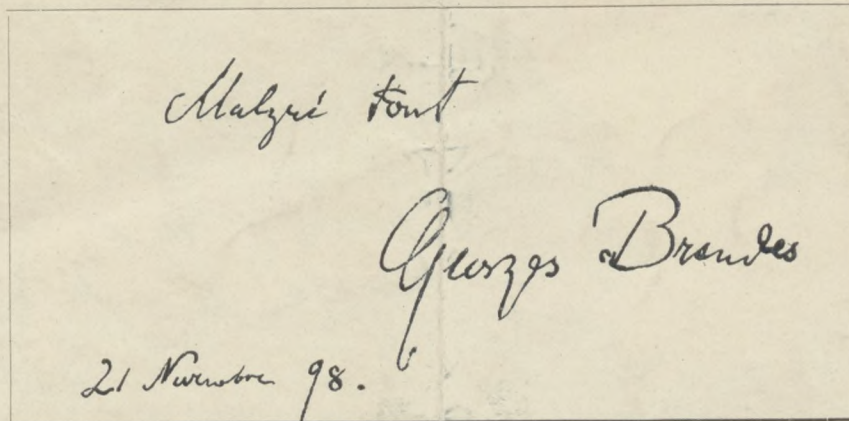 Malgré tout
Georges Brandes
21 Novembre 98.